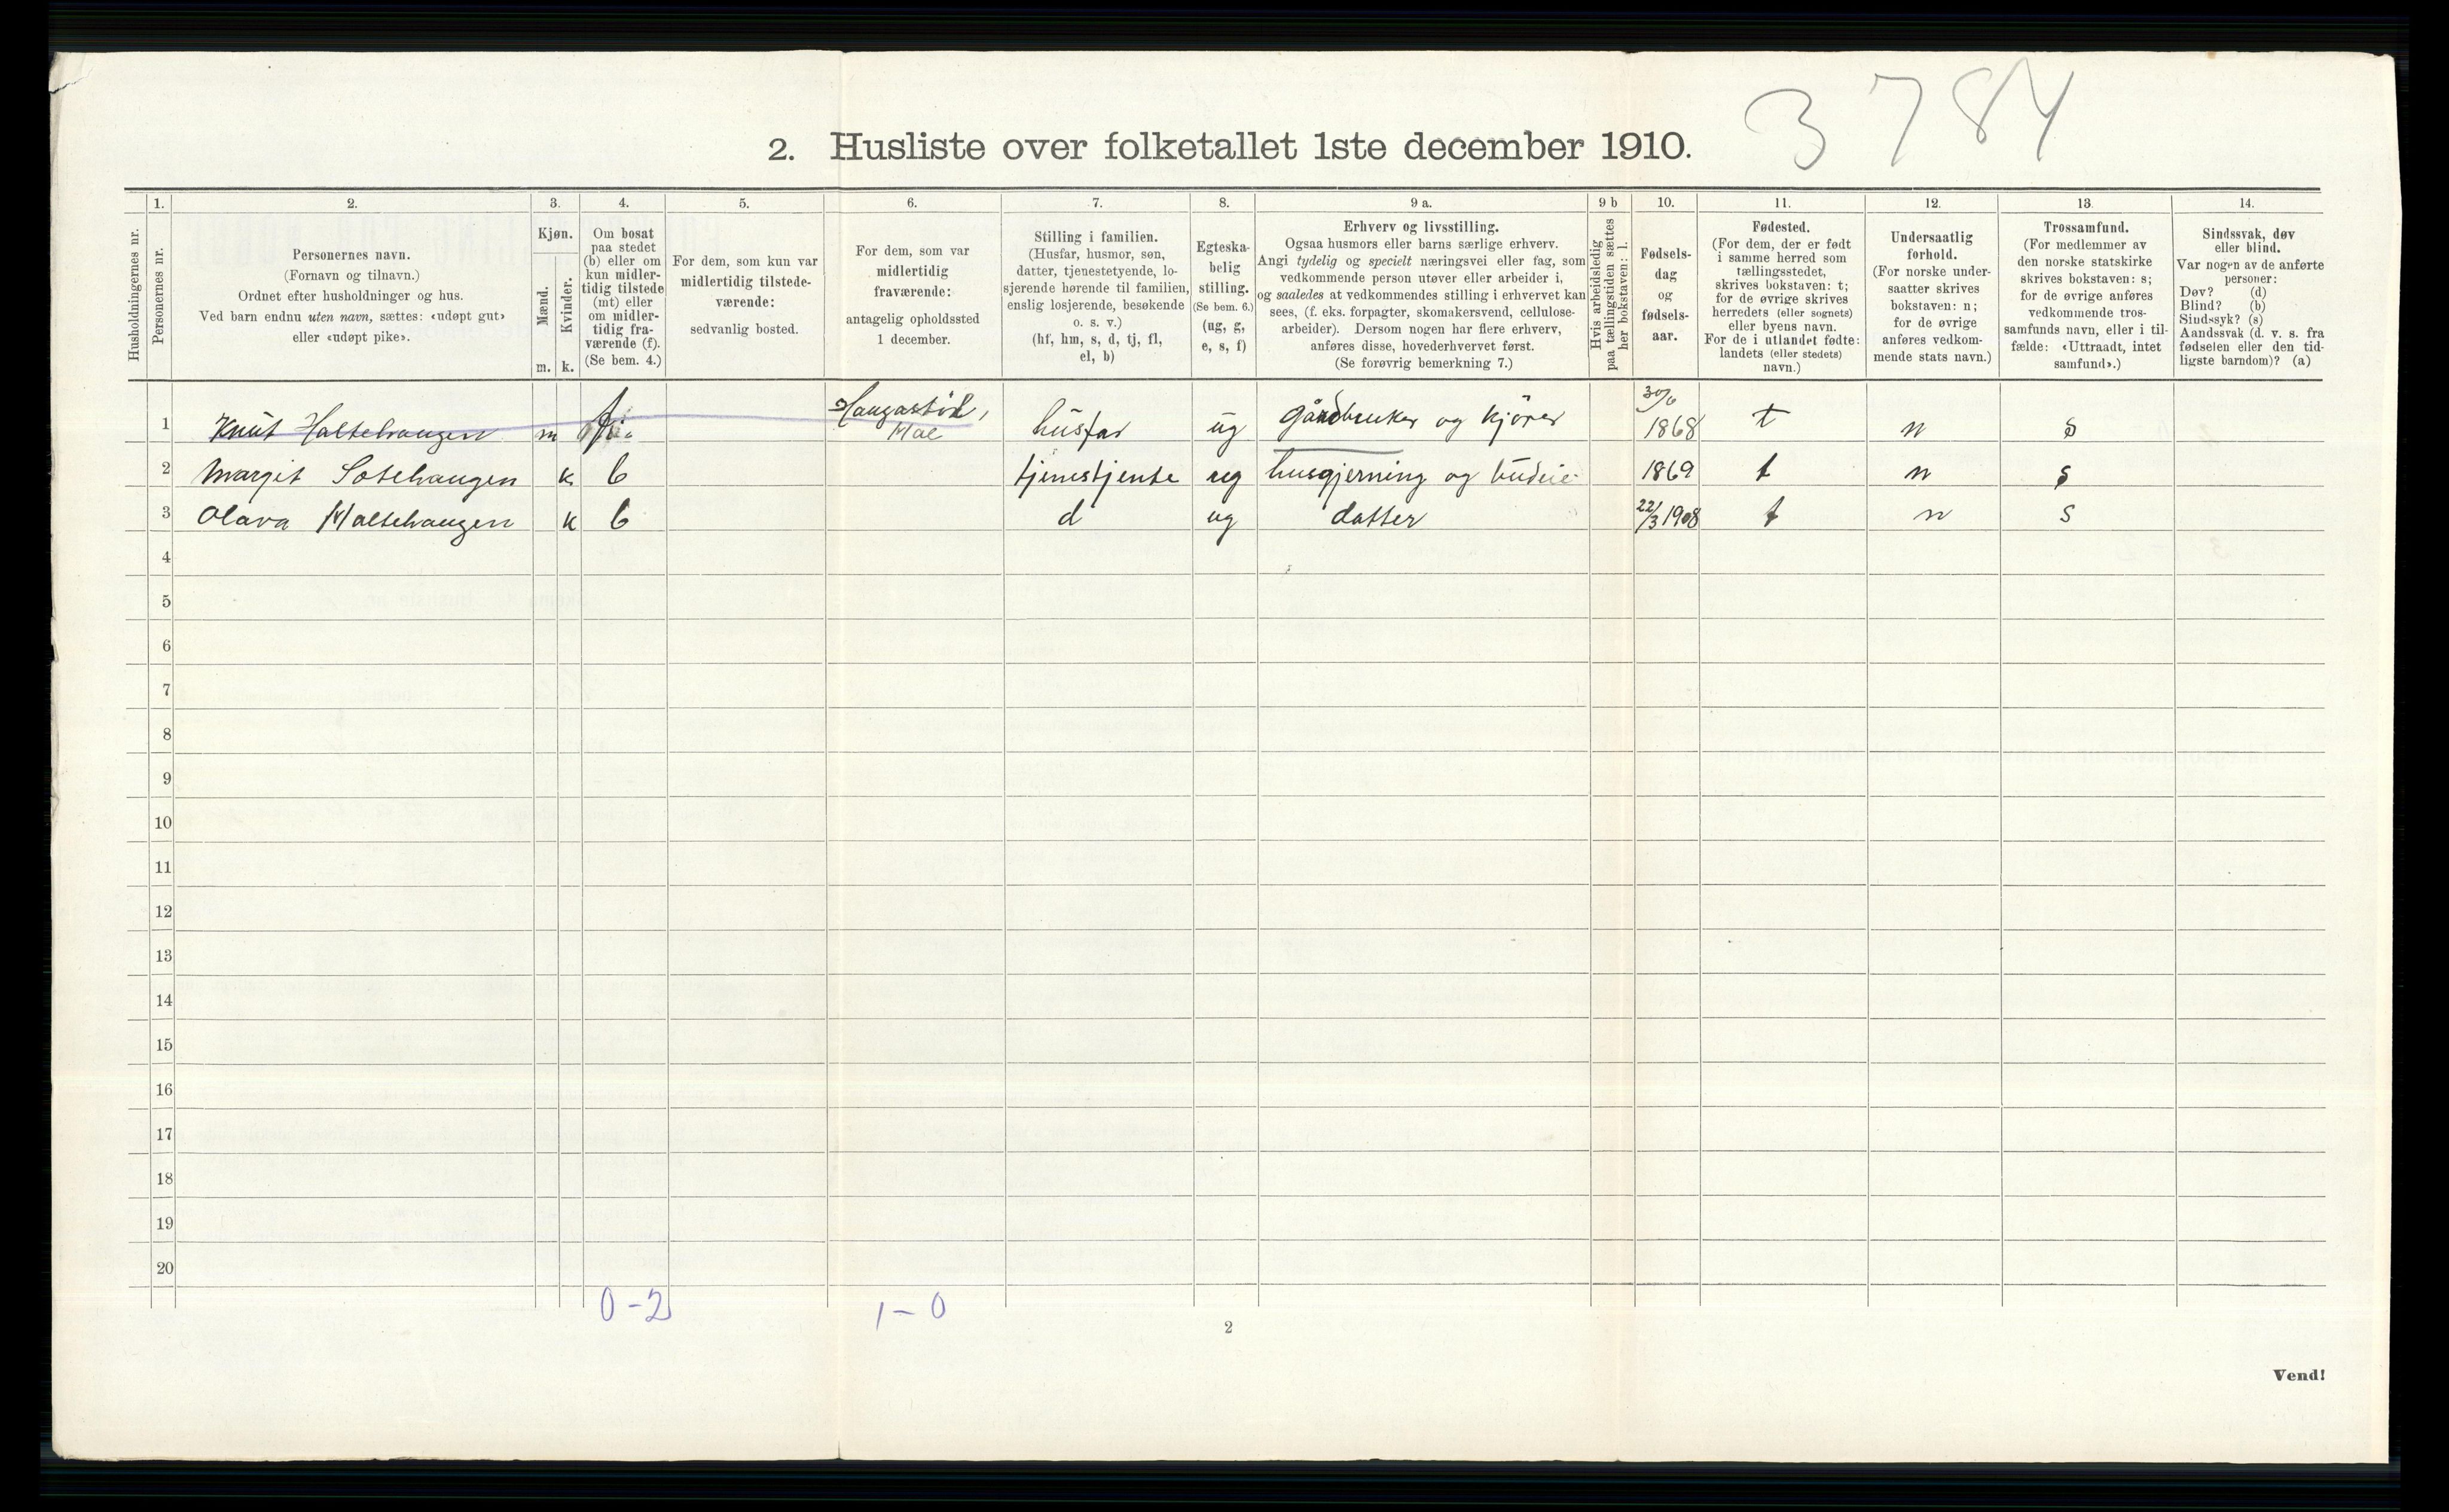 3 784
2. Husliste over folketallet 1ste december 1910.
Husholdningernes nr.
1.
Personernes nr.
2.
Personernes navn.
(Fornavn og tilnavn.)
Ordnet efter husholdninger og hus.
Ved barn endnu uten navn, sættes: «udøpt gut»
eller «udøpt pike».
3.
Kjøn.
Mænd.
Kvinder.
m. k.
4.
Om bosat
paa stedet
(b) eller om
kun midler-
tidig tilstede
(mt) eller
om midler-
tidig fra-
værende (f).
(Se bem. 4.)
5.
For dem, som kun var
midlertidig tilstede-
værende:
sedvanlig bosted.
6.
For dem, som var
midlertidig
fraværende:
antagelig opholdssted
1 december.
7.
Stilling i familien.
(Husfar, husmor, søn,
datter, tjenestetyende, lo-
sjerende hørende til familien,
enslig losjerende, besøkende
o. s. v.)
(hf, hm, s, d, tj, fl,
el, b)
8.
Egteska-
belig
stilling.
(Se bem. 6.)
(ug, g,
e, s, f)
9 a.
Erhverv og livsstilling.
Ogsaa husmors eller barns særlige erhverv.
Angi tydelig og specielt næringsvei eller fag, som
vedkommende person utøver eller arbeider i,
og saaledes at vedkommendes stilling i erhvervet kan
sees, (f. eks. forpagter, skomakersvend, cellulose-
arbeider). Dersom nogen har flere erhverv,
anføres disse, hovederhvervet først.
(Se forøvrig bemerkning 7.)
9 b
Hvis arbeidsledig
paa tællingstiden sættes
her bokstaven: l.
10.
Fødsels-
dag
og
fødsels-
aar.
11.
Fødested.
(For dem, der er født
i samme herred som
tællingsstedet,
skrives bokstaven: t;
for de øvrige skrives
herredets (eller sognets)
eller byens navn.
For de i utlandet fødte:
landets (eller stedets)
navn.)
12.
Undersaatlig
forhold.
(For norske under-
saatter skrives
bokstaven: n;
for de øvrige
anføres vedkom-
mende stats navn.)
13.
Trossamfund.
(For medlemmer av
den norske statskirke
skrives bokstaven: s;
for de øvrige anføres
vedkommende tros-
samfunds navn, eller i til-
fælde: «Uttraadt, intet
samfund».)
14.
Sindssvak, døv
eller blind.
Var nogen av de anførte
personer:
Døv? (d)
Blind? (b)
Sindssyk? (s)
Aandssvak (d. v. s. fra
fødselen eller den tid-
ligste barndom)? (a)
1 Knut Haltehaugen m f Haugastöl, Hol husfar ug gårdbruker og kjörer 30/6 1868 t n s
2 Margit Sotehaugen k b tjenestjente ug husgjerning og budeie 1869 t n s
3 Olava Haltehaugen k b d ug datter 22/3 1908 t n s
4
5
6
7
8
9
10
11
12
13
14
15
16
17
18
19
20
0-2 1-0
2
Vend!